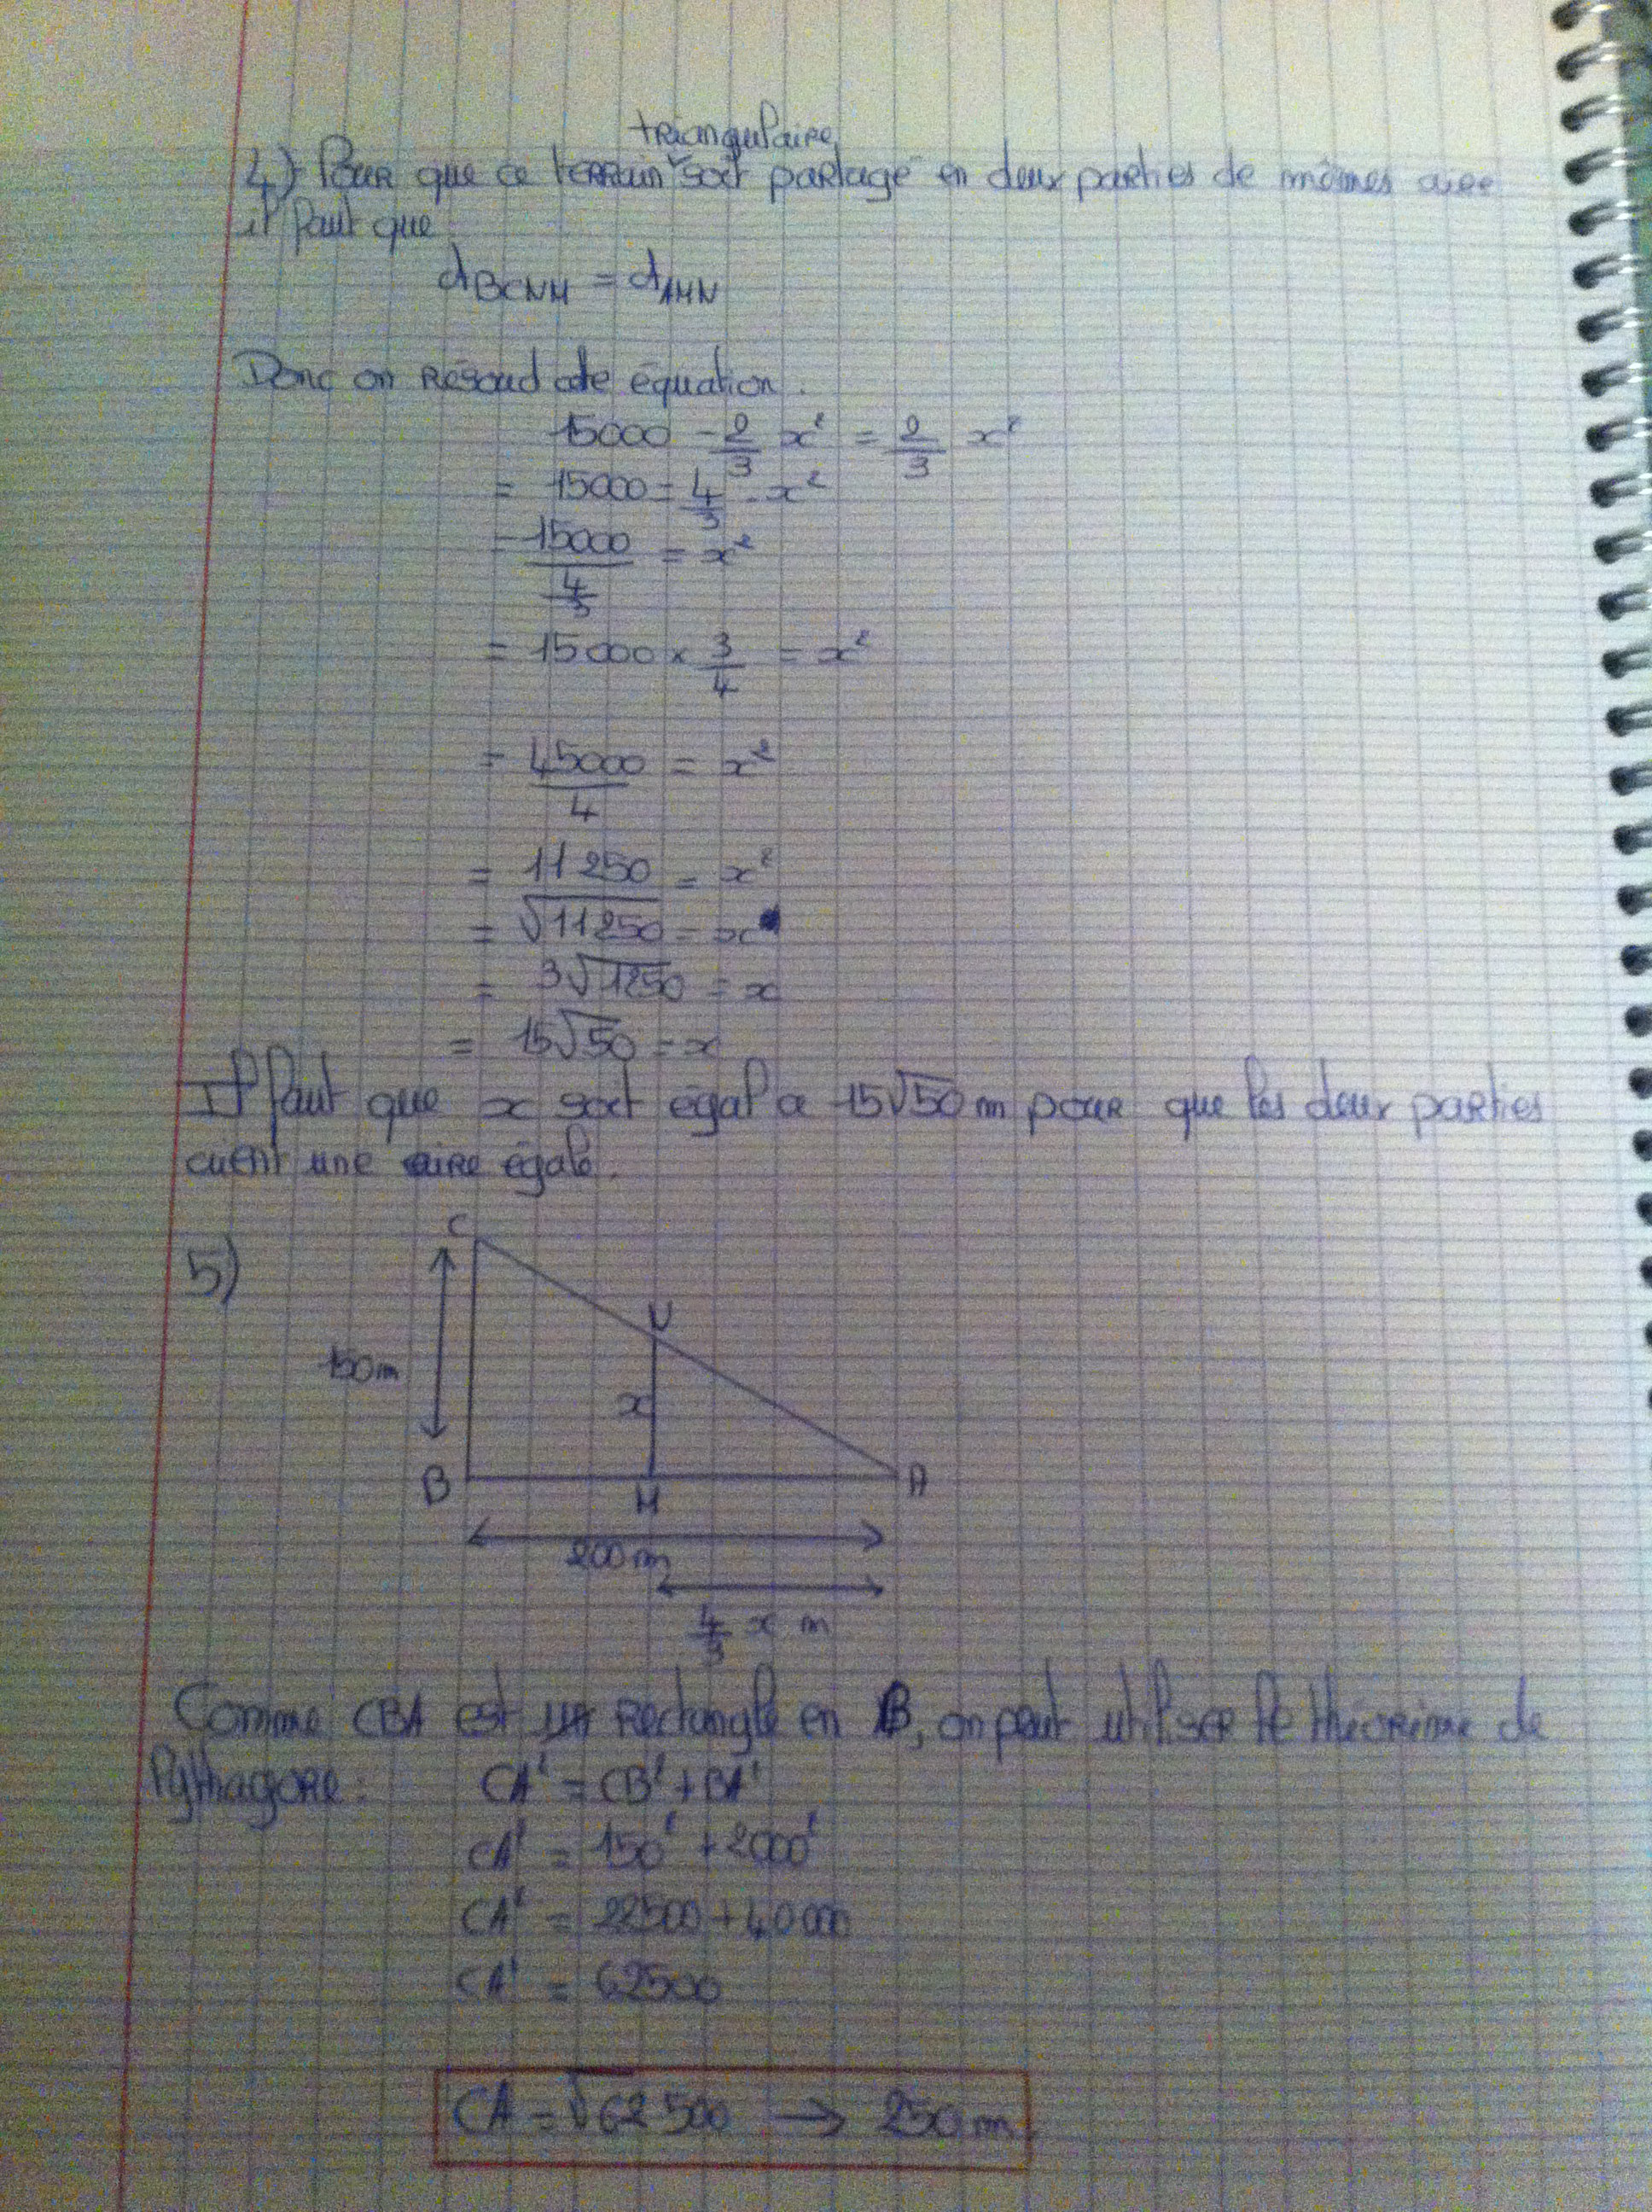 triangulaire
4) Pour que ce terrain soit partagé en deux parties de mêmes aire
il faut que
A BCNM = A AMN
Donc on résoud cete équation.
15000 - 2/3 x² = 2/3 x²
= 15000 = 4/3 x²
= 15000 / (4/3) = x²
= 15000 × 3/4 = x²
= 45000/4 = x²
= 11250 = x²
= √11250 = x
= 3√1250 = x
= 15√50 = x
Il faut que x soit égal a 15√50 m pour que les deux parties
aient une aire égale.
5)
C
N
150m
x
B
M
A
200m
4/3 x m
Comme CBA est rectangle en B, on peut utiliser le théorème de
Pythagore: CA² = CB² + BA²
CA² = 150² + 2000²
CA² = 22500 + 40000
CA² = 62500
CA = √62500 → 250m